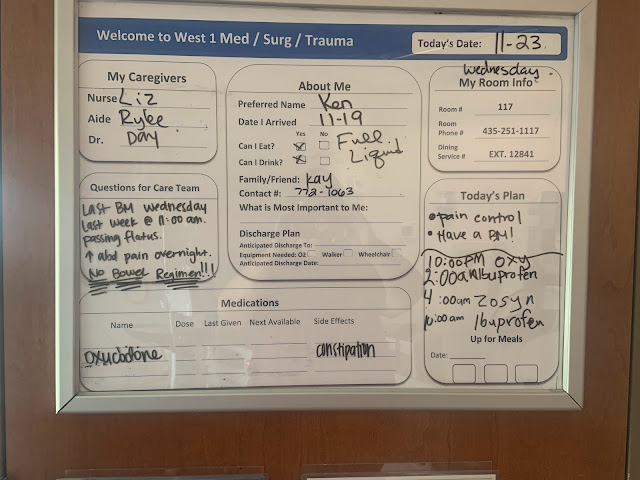 Welcome to West 1 Med / Surg / Trauma
Today's Date: 11-23
wednesday.
My Caregivers
Nurse Liz
Aide Rylee
Dr. Day
About Me
Preferred Name Ken
Date I Arrived 11-19
Yes No
Can I Eat?
Can I Drink?
Full
Liquid
Family/Friend: Kay
Contact #: 772-1063
What is Most Important to Me:
Discharge Plan
Anticipated Discharge To:
Equipment Needed: O2 Walker Wheelchair
Anticipated Discharge Date:
My Room Info
Room # 117
Room
Phone # 435-251-1117
Dining
Service # EXT. 12841
Questions for Care Team
Last BM wednesday
last week @ 11:00 am.
passing flatus.
↑ abd pain overnight.
No Bowel Regimen!!!
Today's Plan
• pain control
• Have a BM!
10:00PM OXY
2:00am Ibuprofen
4:00am Zosyn
10:00am Ibuprofen
Up for Meals
Date:
Medications
Name Dose Last Given Next Available Side Effects
oxycodone constipation